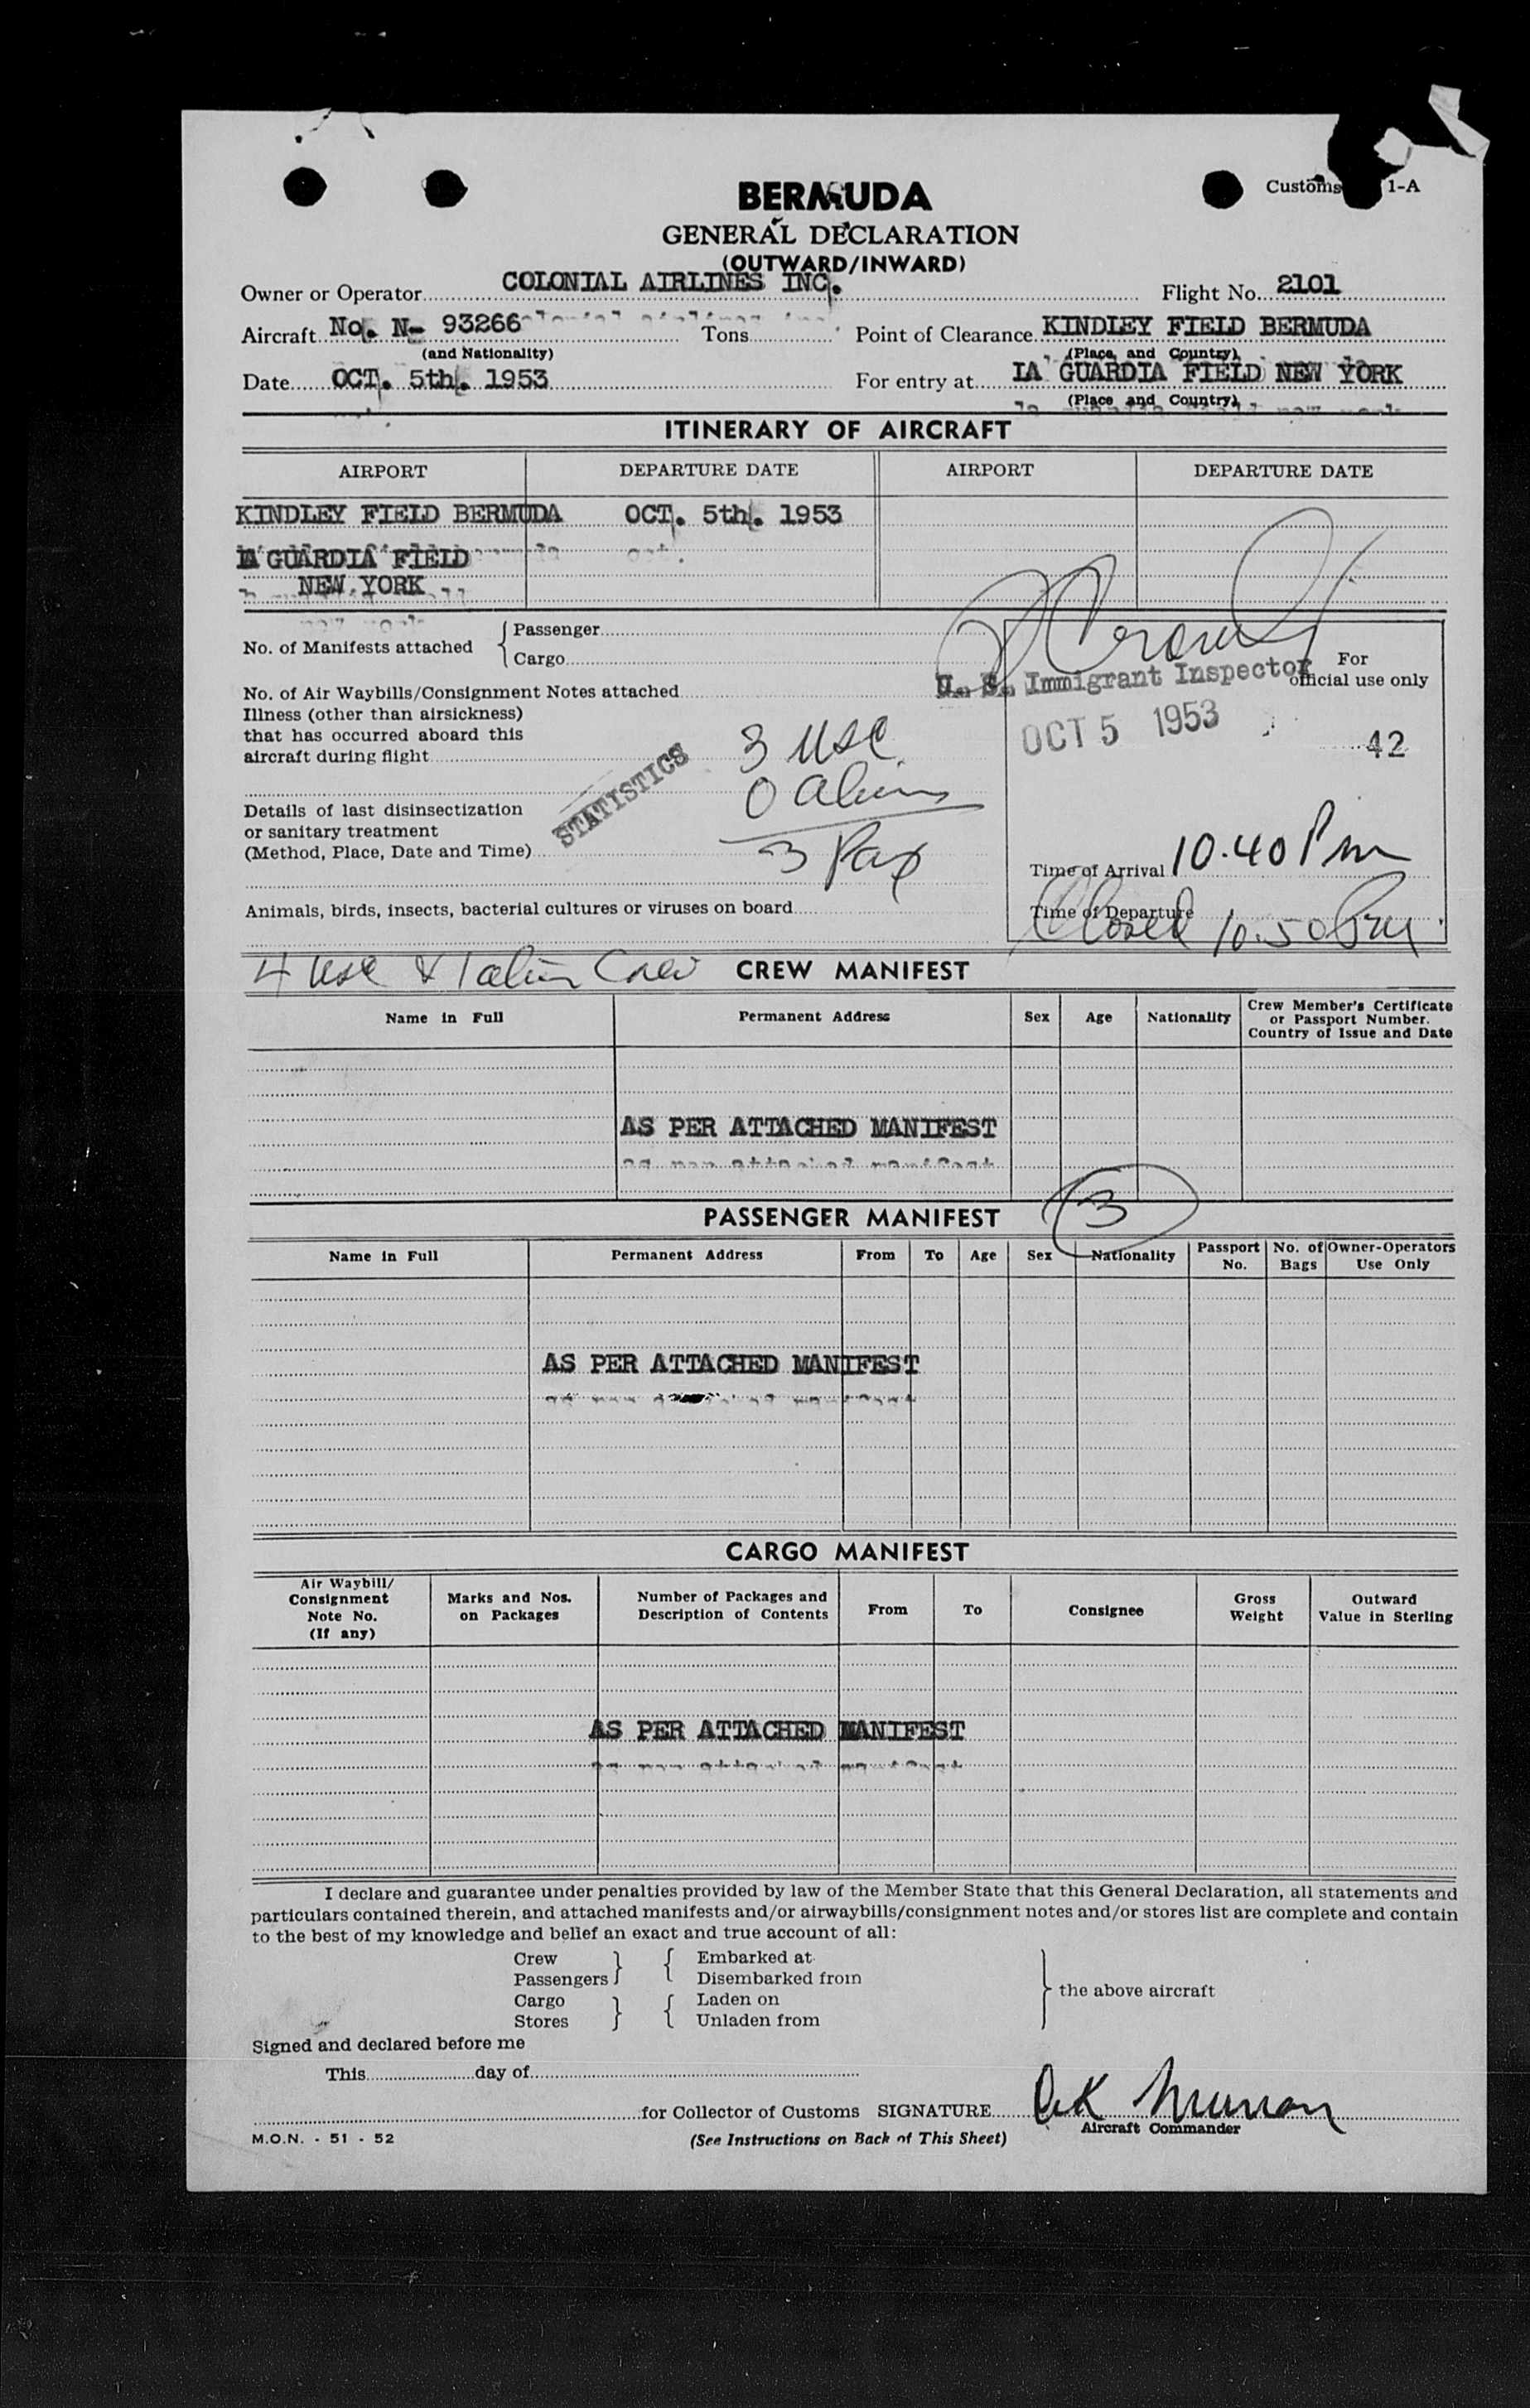 Customs 1-A
BERMUDA
GENERAL DECLARATION
(OUTWARD/INWARD)
Owner or Operator COLONIAL AIRLINES INC. Flight No. 2101
Aircraft No. N- 93266 Tons Point of Clearance KINDLEY FIELD BERMUDA
(and Nationality) (Place and Country)
Date OCT. 5th. 1953 For entry at LA GUARDIA FIELD NEW YORK
(Place and Country)
ITINERARY OF AIRCRAFT
AIRPORT DEPARTURE DATE AIRPORT DEPARTURE DATE
KINDLEY FIELD BERMUDA OCT. 5th. 1953
LA GUARDIA FIELD
NEW YORK
No. of Manifests attached { Passenger
Cargo
For official use only
U. S. Immigrant Inspector
OCT 5 1953
42
No. of Air Waybills/Consignment Notes attached
Illness (other than airsickness)
that has occurred aboard this
aircraft during flight
STATISTICS
3 USC
0 Aliens
3 Pax
Details of last disinsectization
or sanitary treatment
(Method, Place, Date and Time)
Time of Arrival 10.40 Pm
Time of Departure
Closed 10.50 Pm
Animals, birds, insects, bacterial cultures or viruses on board
4 USC & 1 alien Crew
CREW MANIFEST
Name in Full Permanent Address Sex Age Nationality Crew Member's Certificate
or Passport Number.
Country of Issue and Date
AS PER ATTACHED MANIFEST
as per attached manifest
PASSENGER MANIFEST 3
Name in Full Permanent Address From To Age Sex Nationality Passport No. No. of Bags Owner-Operators Use Only
AS PER ATTACHED MANIFEST
CARGO MANIFEST
Air Waybill/
Consignment
Note No.
(If any) Marks and Nos.
on Packages Number of Packages and
Description of Contents From To Consignee Gross
Weight Outward
Value in Sterling
AS PER ATTACHED MANIFEST
as per attached manifest
I declare and guarantee under penalties provided by law of the Member State that this General Declaration, all statements and
particulars contained therein, and attached manifests and/or airwaybills/consignment notes and/or stores list are complete and contain
to the best of my knowledge and belief an exact and true account of all:
Crew } { Embarked at
Passengers Disembarked from
Cargo } { Laden on
Stores Unladen from
} the above aircraft
Signed and declared before me
This day of
for Collector of Customs SIGNATURE
Aircraft Commander
M.O.N. - 51 - 52
(See Instructions on Back of This Sheet)